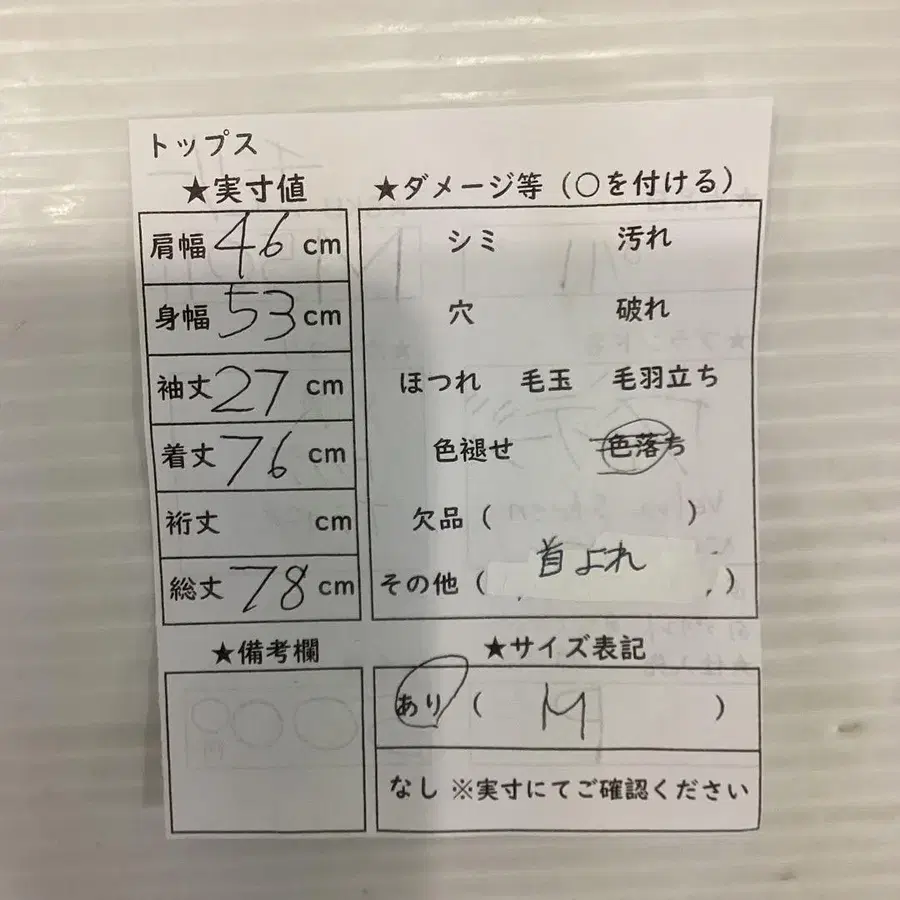 トップス
★実寸値
肩幅 46 cm
身幅 53 cm
袖丈 27 cm
着丈 76 cm
裄丈 cm
総丈 78 cm
★ダメージ等（○を付ける）
シミ 汚れ
穴 破れ
ほつれ 毛玉 毛羽立ち
色褪せ 色落ち
欠品（ ）
その他（ 首よれ ）
★備考欄
★サイズ表記
あり（ M ）
なし ※実寸にてご確認ください